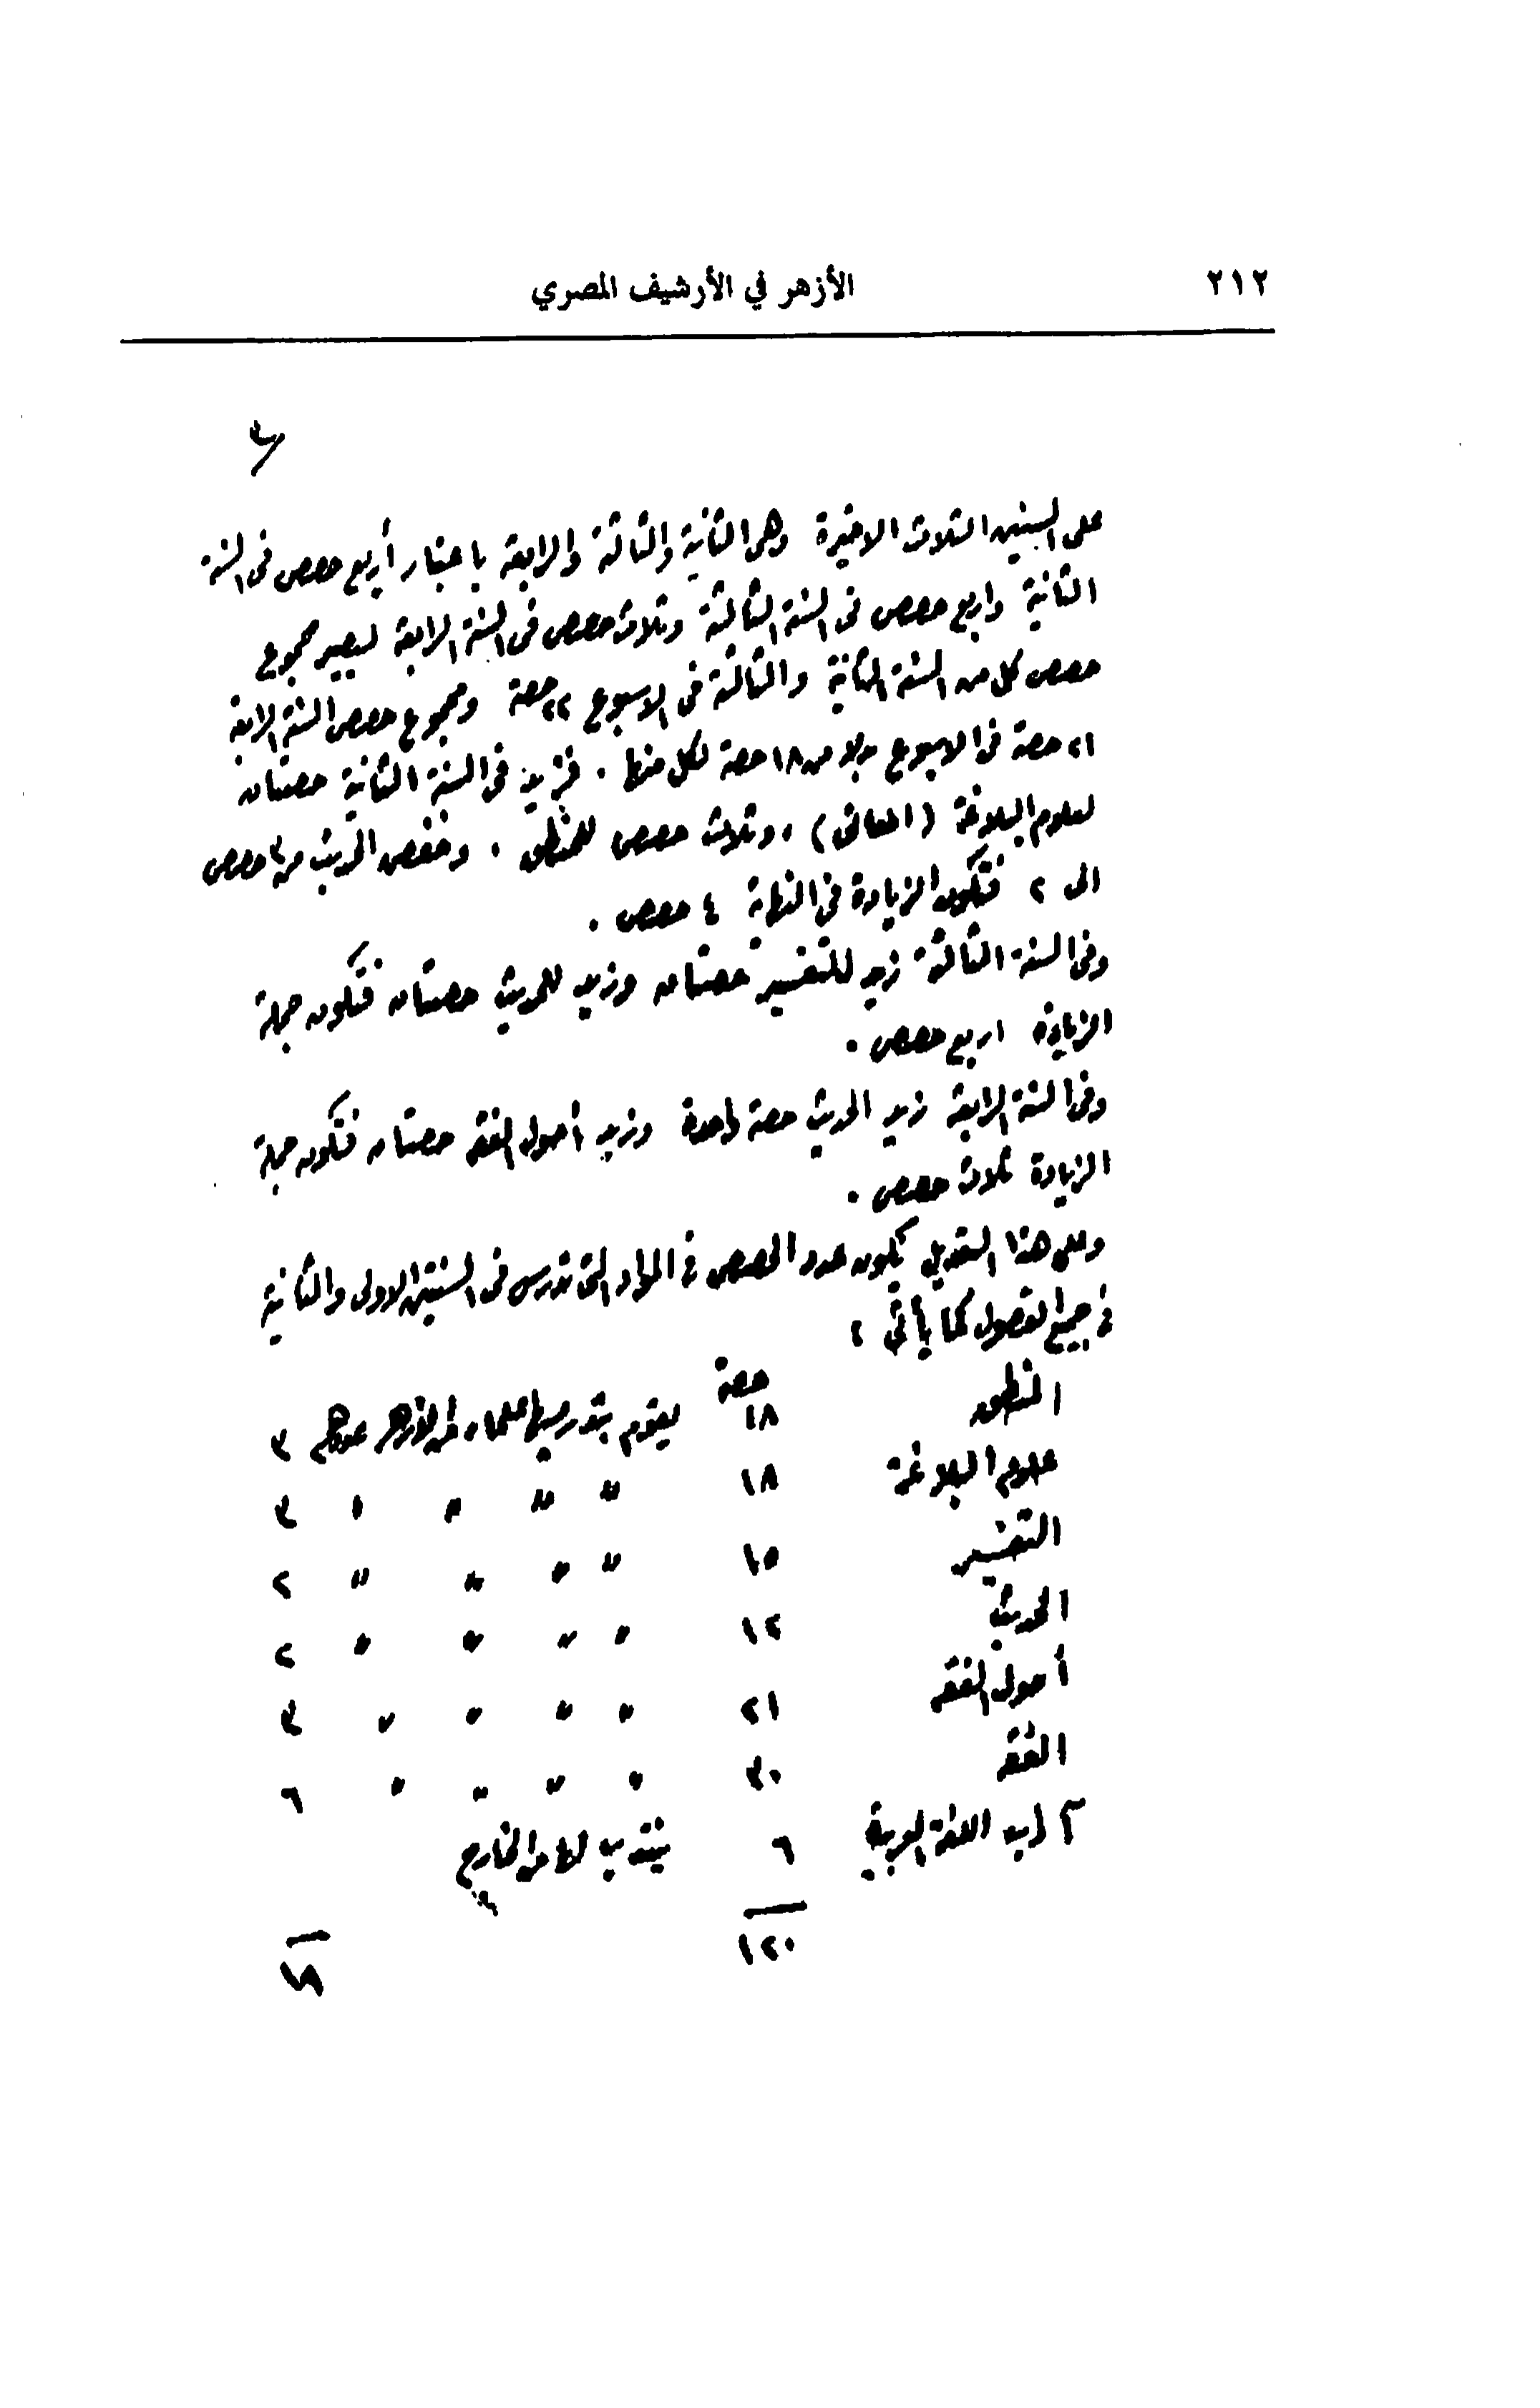 ٢١٢
الأزهر في الأرشيف المصري
على السنين الثلاث الاخيرة وهى الثانية والثالثة والرابعة باعتبار أربع حصص فى السنة
الثانية واربع حصص فى السنة الثالثة وثلاث حصص فى السنة الرابعة ليصير مجموع
حصص كل من السنة الثانية والثالثة فى الاسبوع ٢٢ حصة ومجموع حصص السنة الرابعة
٢١ حصة فى الاسبوع بدلا من ١٨ حصة لكل منها . فزيد فى السنة الثانية حصتان
لعلوم البلاغة (المعانى) ، وثلاث حصص للمنطق . وخفض الحديث من ٣ حصص
الى ٢ فتكون الزيادة فى النهاية ٤ حصص .
وفى السنة الثالثة زيد للتفسير حصتان وزيد للحديث حصتان فتكون جملة
الزيادة اربع حصص .
وفى السنة الرابعة زيد الحديث حصة واحدة وزيد أصول الفقه حصتان فتكون جملة
الزيادة ثلاث حصص .
وعلى هذا التعديل يكون عدد الحصص فى المواد التى تدرس فى السنتين الاولى والثانية
فى جميع الفصول كما يأتى :
المنطق ١٨ حصة يقوم بتدريسها علماء من الأزهر عددهم ٣
علوم البلاغة ١٨ " " " " ٣
التفسير ١٥ " " " " ٢
الحديث ١٢ " " " " ٢
أصول الفقه ٢١ " " " " ٣
الفقه ٣٠ " " " " ٦
آداب اللغة العربية ٦ ينتدب لها من الخارج
١٢٠ ١٩